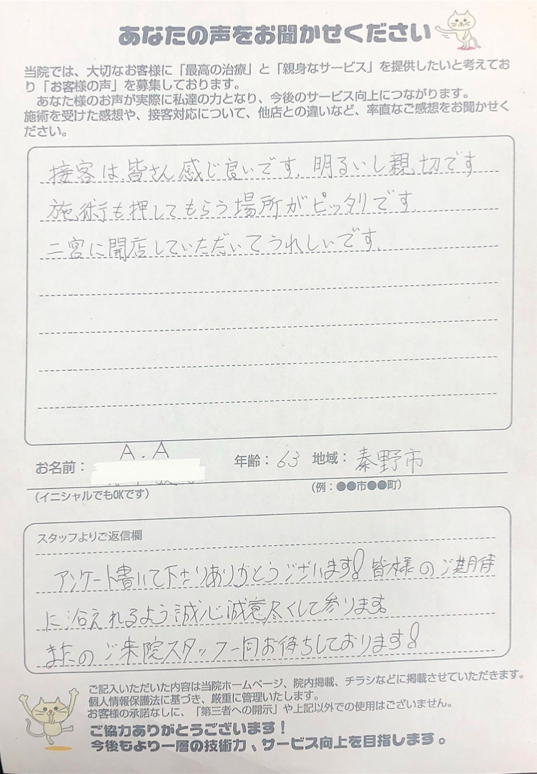 あなたの声をお聞かせください
当院では、大切なお客様に「最高の治療」と「親身なサービス」を提供したいと考えてお
り「お客様の声」を募集しております。
あなた様のお声が実際に私達の力となり、今後のサービス向上につながります。
施術を受けた感想や、接客対応について、他店との違いなど、率直なご感想をお聞かせく
ださい。
接客は皆さん感じ良いです。明るいし親切です
施術も押してもらう場所がピッタリです。
二宮に開店していただいてうれしいです。
お名前： A.A 年齢：63 地域：秦野市
（イニシャルでもOKです） （例：●●市●●町）
スタッフよりご返信欄
アンケート書いて下さりありがとうございます！皆様のご期待
に沿えれるよう誠心誠意尽くして参ります
またのご来院スタッフ一同お待ちしております！
ご記入いただいた内容は当院ホームページ、院内掲載、チラシなどに掲載させていただきます。
個人情報保護法に基づき、厳重に管理いたします。
お客様の承諾なしに、「第三者への開示」や上記以外での使用はございません。
ご協力ありがとうございます！
今後もより一層の技術力、サービス向上を目指します。